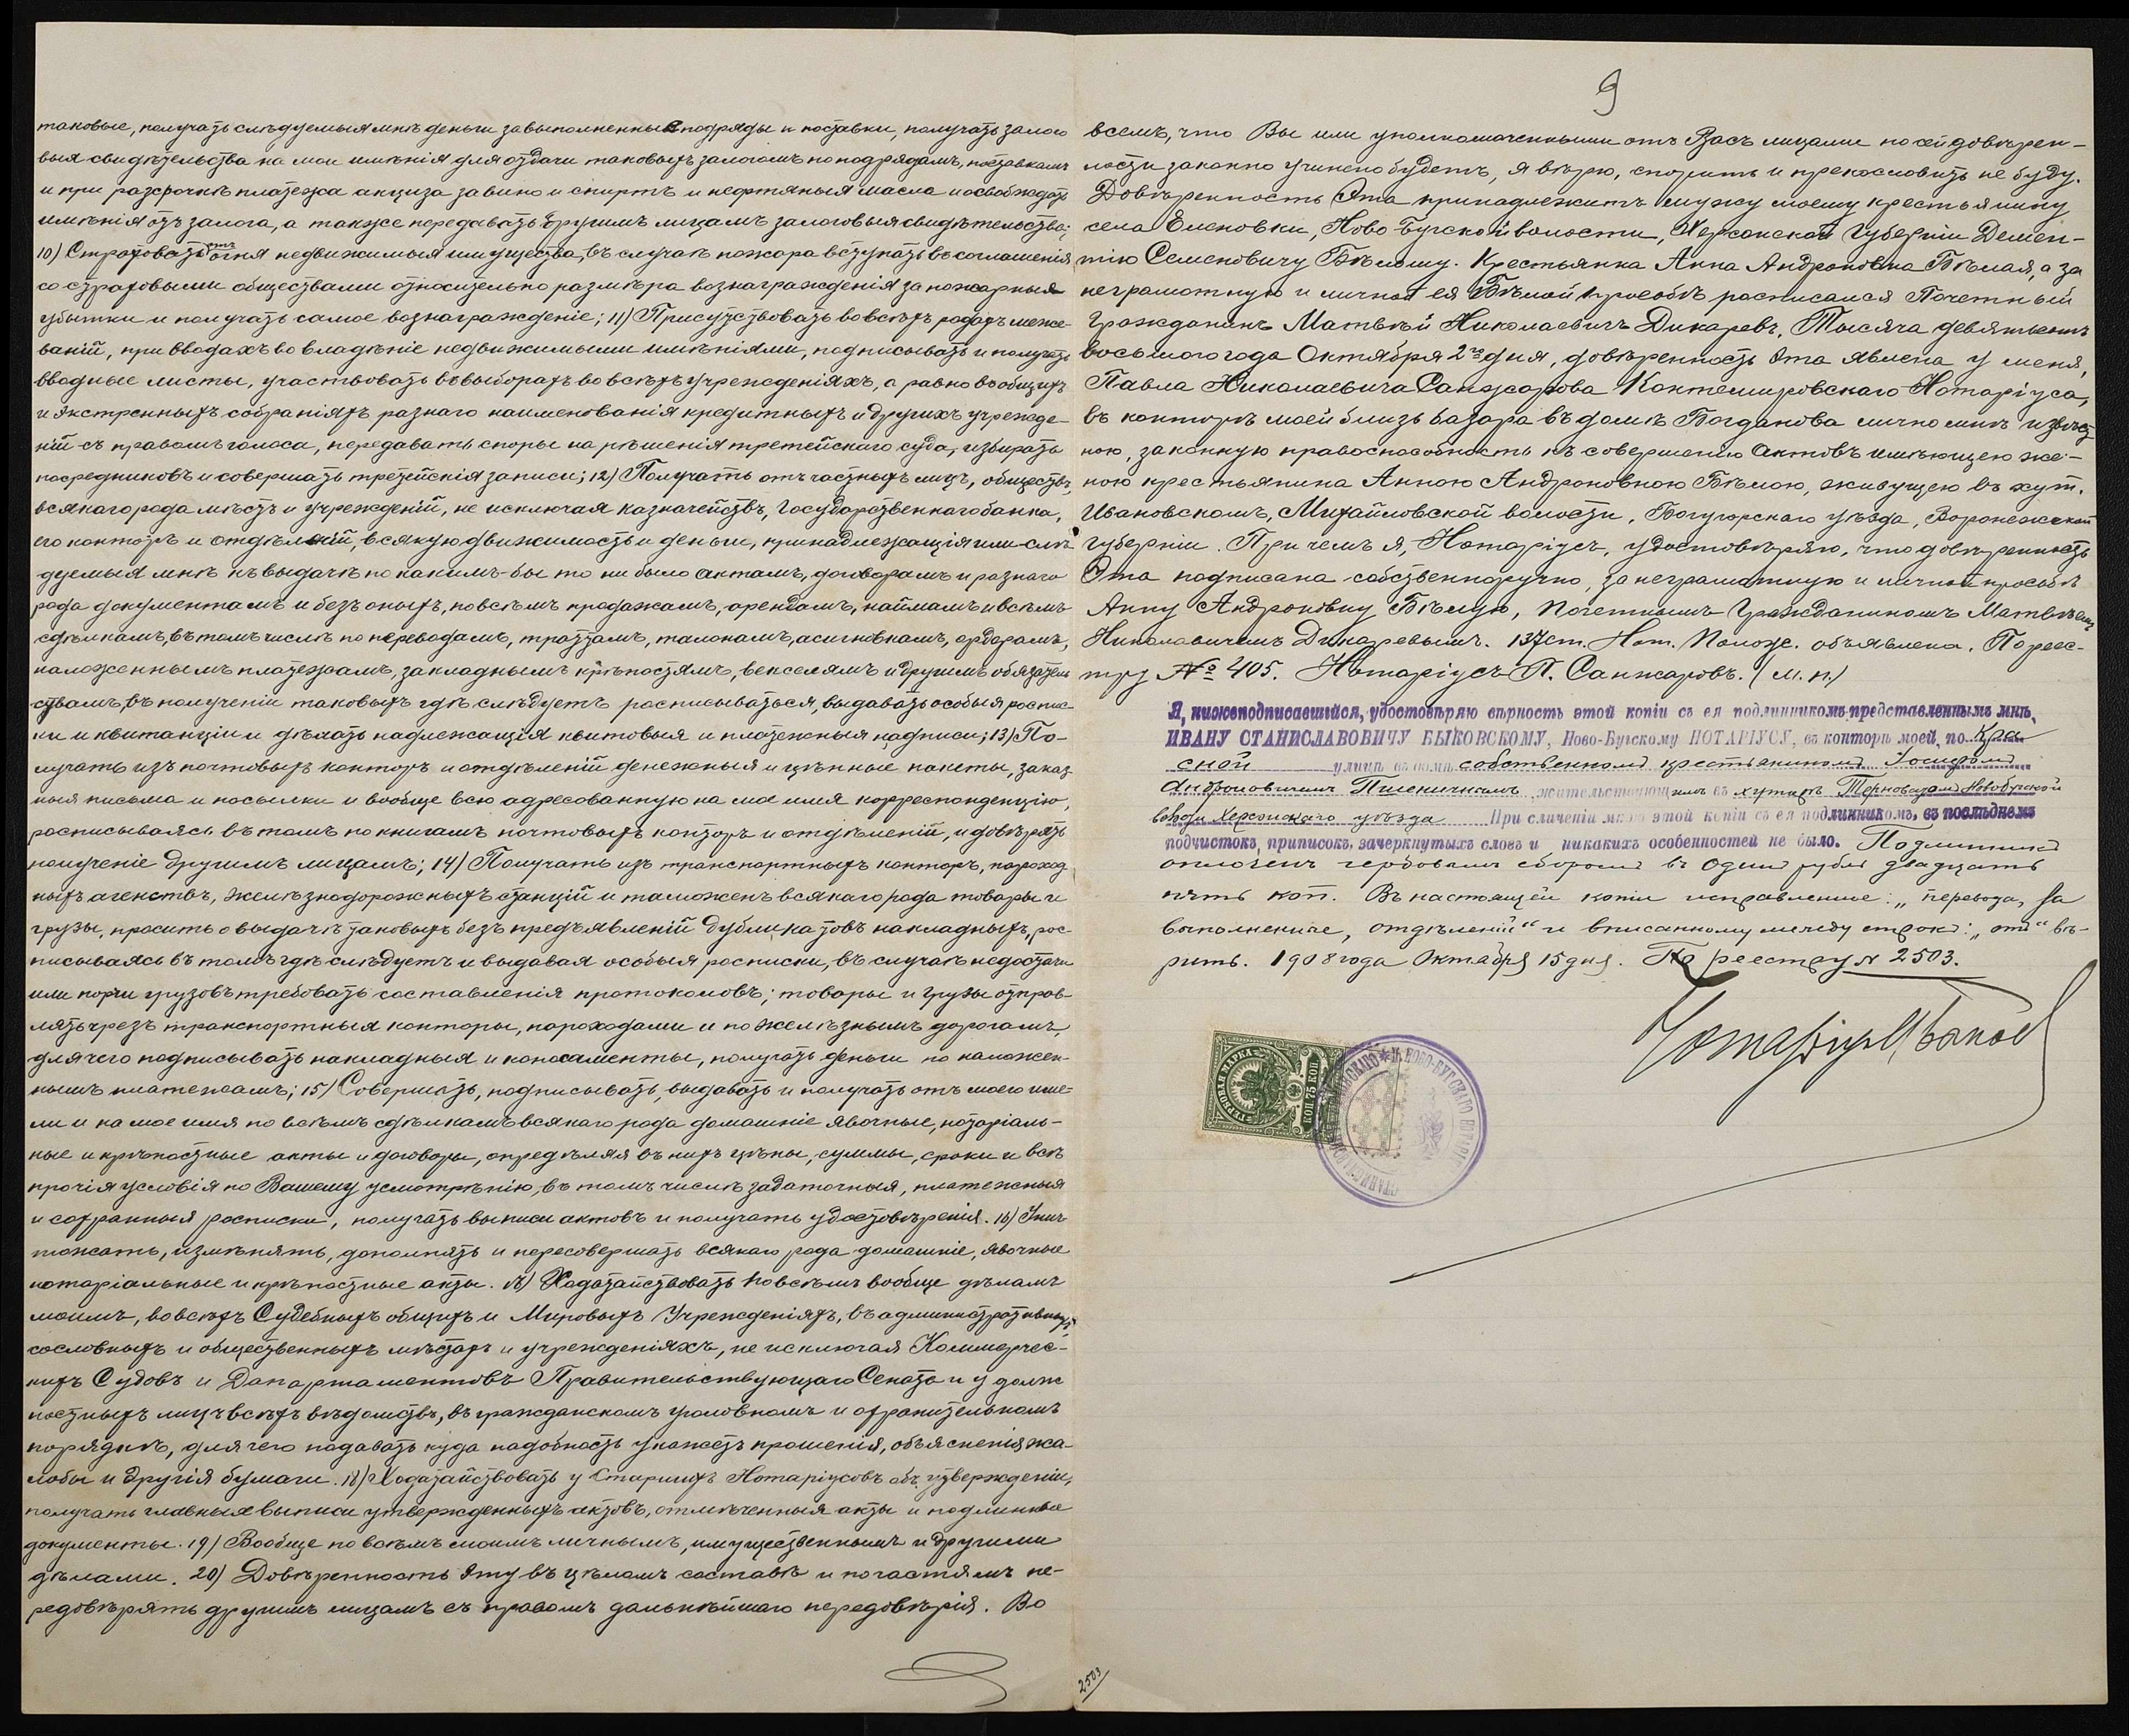 таковые, получать слѣдуемыя мнѣ деньги за выполненные подряды и поставки, получать залого
выя свидѣтельства на мои имѣнія для отдачи таковыхъ залогомъ по подрядамъ, поставкамъ
и при разсрочкѣ платежа акциза за вино и спиртъ и нефтяныя масла и освобождать
имѣнія отъ залога, а также передавать другимъ лицамъ залоговыя свидѣтельства;
10) Страховать отъ огня недвижимыя имущества, въ случаѣ пожара вступать въ соглашенія
со страховыми обществами относительно размѣра вознагражденія за пожарные
убытки и получать самое вознагражденіе; 11) Присутствовать во всѣхъ родахъ меже-
ваній, при вводахъ во владѣніе недвижимыми имѣніями, подписывать и получать
вводные листы, участвовать въ выборахъ во всѣхъ учрежденіяхъ, а равно въ общихъ
и экстренныхъ собраніяхъ разнаго наименованія кредитныхъ и другихъ учрежде-
ній съ правомъ голоса, передавать споры на рѣшенія третейскаго суда, избирать
посредниковъ и совершать третейскія записи; 12) Получать отъ частныхъ лицъ, обществъ,
всякаго рода мѣстъ и учрежденій, не исключая казначействъ, Государственнаго банка,
его конторъ и отдѣленій, всякую движимость и деньги, принадлежащія или слѣ
дуемыя мнѣ къ выдачѣ по какимъ-бы то ни было актамъ, договорамъ и разнаго
рода документамъ и безъ оныхъ, по всѣмъ продажамъ, арендамъ, наймамъ и всѣмъ
сдѣлкамъ, въ томъ числѣ по переводамъ, траттамъ, талонамъ, асигновкамъ, ордерамъ,
наложеннымъ платежамъ, закладнымъ крѣпостямъ, векселямъ и другимъ обязатель
ствамъ, въ полученіи таковыхъ гдѣ слѣдуетъ расписываться, выдавать особыя роспис-
ки и квитанціи и дѣлать надлежащія квитовыя и платежныя надписи; 13) По-
лучать изъ почтовыхъ конторъ и отдѣленій денежныя и цѣнные пакеты, заказ
ныя письма и посылки и вообще всю адресованную на мое имя корреспонденцію,
расписываясь въ томъ по книгамъ почтовыхъ конторъ и отдѣленій, и довѣрять
полученіе другимъ лицамъ; 14) Получать изъ транспортныхъ конторъ, пароход
ныхъ агенствъ, желѣзнодорожныхъ станцій и таможенъ всякаго рода товары и
грузы, просить о выдачѣ таковыхъ безъ предъявленій дубликатовъ накладныхъ, рос-
писываясь въ томъ гдѣ слѣдуетъ и выдавая особыя росписки, въ случаѣ недостачи
или порчи грузовъ требовать составленія протоколовъ; товары и грузы отправ-
лять чрезъ транспортныя конторы, пароходами и по желѣзнымъ дорогамъ,
для чего подписывать накладныя и коносаменты, получать деньги по наложен-
нымъ платежамъ; 15) Совершать, подписывать, выдавать и получать отъ моего име-
ни и на мое имя по всѣмъ сдѣлкамъ всякаго рода домашніе явочные, нотаріаль-
ные и крѣпостные акты и договоры, опредѣляя въ нихъ цѣны, суммы, сроки и всѣ
прочія условія по Вашему усмотрѣнію, въ томъ числѣ задаточныя, платежныя
и сохранныя росписки, получать выписи актовъ и получать удостовѣренія. 16) Унич
тожать, измѣнять, дополнять и пересовершать всякаго рода домашніе, явочные
нотаріальные и крѣпостные акты. 17) Ходатайствовать по всѣмъ вообще дѣламъ
моимъ, во всѣхъ Судебныхъ общихъ и Мировыхъ Учрежденіяхъ, въ административныхъ,
сословныхъ и общественныхъ мѣстахъ и учрежденіяхъ, не исключая Коммерчес-
кихъ Судовъ и Департаментовъ Правительствующаго Сената и у долж
ностныхъ лицъ всѣхъ вѣдомствъ, въ гражданскомъ уголовномъ и охранительномъ
порядкѣ, для чего подавать куда надобность укажетъ прошенія, объясненія жа-
лобы и другія бумаги. 18) Ходатайствовать у Старшихъ Нотаріусовъ объ утвержденіи,
получать главныя выписи утвержденныхъ актовъ, отмѣченныя акты и подлинные
документы. 19) Вообще по всѣмъ моимъ личнымъ, имущественнымъ и другими
дѣлами. 20) Довѣренность эту въ цѣломъ составѣ и по частямъ пе-
редовѣрять другимъ лицамъ съ правомъ дальнѣйшаго передовѣрія. Во
9
всемъ, что Вы или уполномоченными отъ Васъ лицами по сей довѣрен-
ности законно учинено будетъ, я вѣрю, спорить и прекословить не буду.
Довѣренность Эта принадлежитъ мужу моему крестьянину
села Еленовки, Ново-Бугской волости, Херсонской Губерніи Демен-
тію Семеновичу Бѣлому. Крестьянка Анна Андроновна Бѣлая, а за
неграмотную и личной ея Бѣлой просьбѣ расписался Почетный
Гражданинъ Матвѣй Николаевичъ Дикаревъ. Тысяча девятьсотъ
восьмого года Октября 2го дня, довѣренность эта явлена у меня,
Павла Николаевича Санжарова Кантемировскаго Нотаріуса,
въ конторѣ моей близь базара въ домѣ Богданова лично мнѣ извѣст
ною, законную правоспособность къ совершенію Актовъ имѣющею же-
ною крестьянина Анною Андроновною Бѣлою, живущею въ хут.
Ивановскомъ, Михайловской волости, Богучарскаго уѣзда, Воронежской
губерніи. При чемъ я, Нотаріусъ, удостовѣряю, что довѣренность
Эта подписана собственноручно, за неграмотную и личной просьбѣ
Анну Андроновну Бѣлую, Почетнымъ Гражданиномъ Матвѣемъ
Николаевичемъ Дикаревымъ. 137 ст. Нот. Полож. объявлена. По реес-
тру № 405. Нотаріусъ П. Санжаровъ. (М. п.)
Я, нижеподписавшійся, удостовѣряю вѣрность этой копіи съ ея подлинникомъ представленнымъ мнѣ,
ИВАНУ СТАНИСЛАВОВИЧУ БЫКОВСКОМУ, Ново-Бугскому НОТАРІУСУ, въ конторѣ моей, по Кра-
сной улицѣ въ домѣ собственномъ крестьяниномъ Іосифомъ
Андроновичемъ Пшеничнымъ жительствующимъ въ хуторѣ Терноватомъ Новобугской
волости Херсонскаго уѣзда При сличеніи мною этой копіи съ ея подлинникомъ, въ послѣднемъ
подчистокъ, приписокъ, зачеркнутыхъ словъ и никакихъ особенностей не было. Подлинникъ
оплоченъ гербовымъ сборомъ въ одинъ рубль двадцать
пять коп. Въ настоящей копіи исправленное: „перевода, за
выполненные, отдѣленій“ и вписанному между строкъ: „отъ“ вѣ-
рить. 1908 года Октября 15 дня. По реестру № 2503.
Нотаріусъ
ГЕРБОВАЯ МАРКА
КОП 75 КОП
НОВО-БУГСКАГО НОТАРІУСА
2503